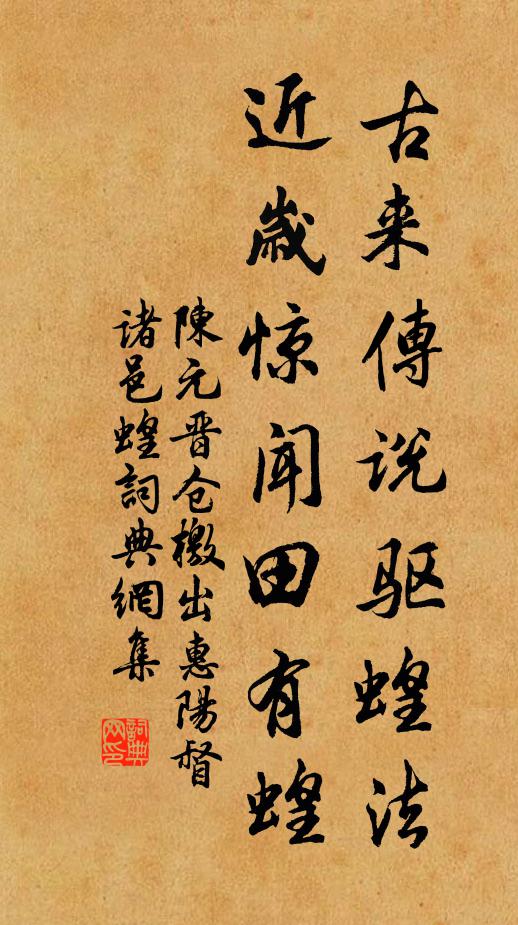 古来傳説驱蝗法
近歲惊闻田有蝗
陳元晋仓檄出惠陽督
诸邑蝗詞典網集
詞典
网印